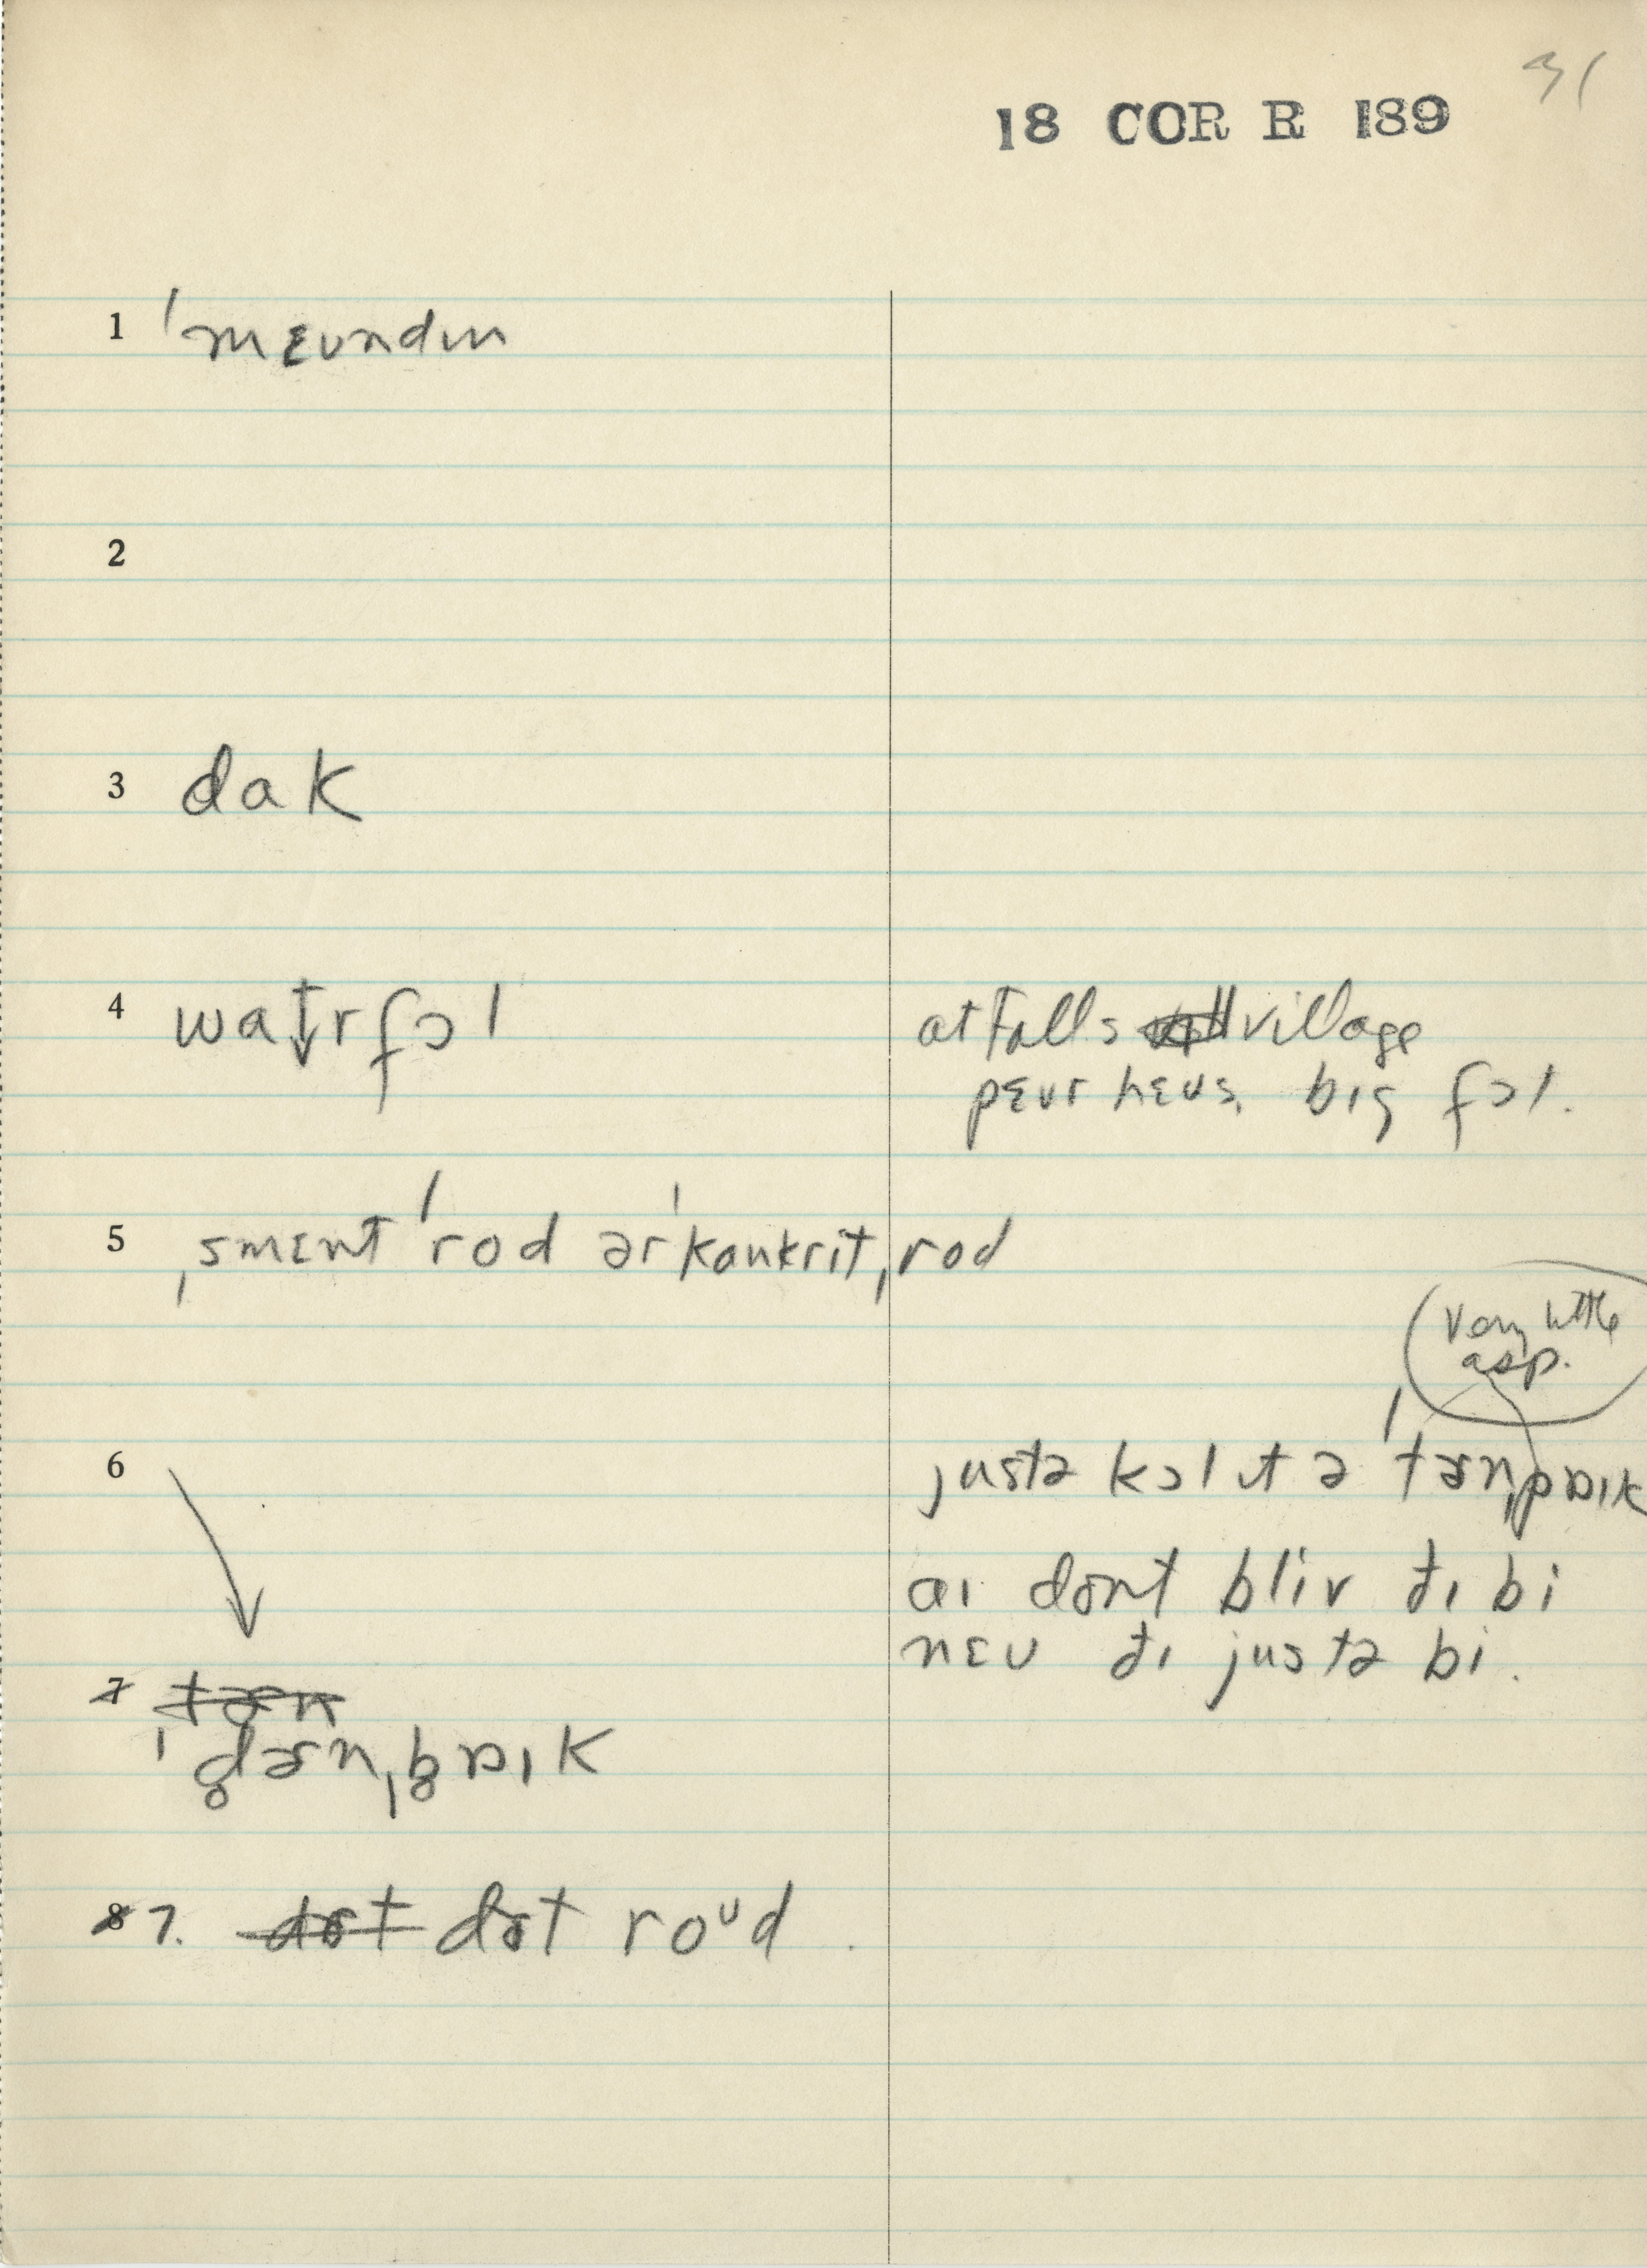 31
18 COR R 189
1 ˈmɛʊndɪn
2
3 dak
4 wat̬rfɔl
at Falls village
pɛʊr hɛʊs, big fɔl.
5 ˌsmɛnt ˈrod ər ˈkankritˌrod
very little
asp.
6 justə kɔl ɪt ə ˈtɚnˌpaɪk
aɪ dont bliv ðɪ bi
nɛʊ ðɪ justə bi.
7 tɚn
ˈd̥ɚnˌb̥aɪk
8 7. dɚt dɚt roᴜd.